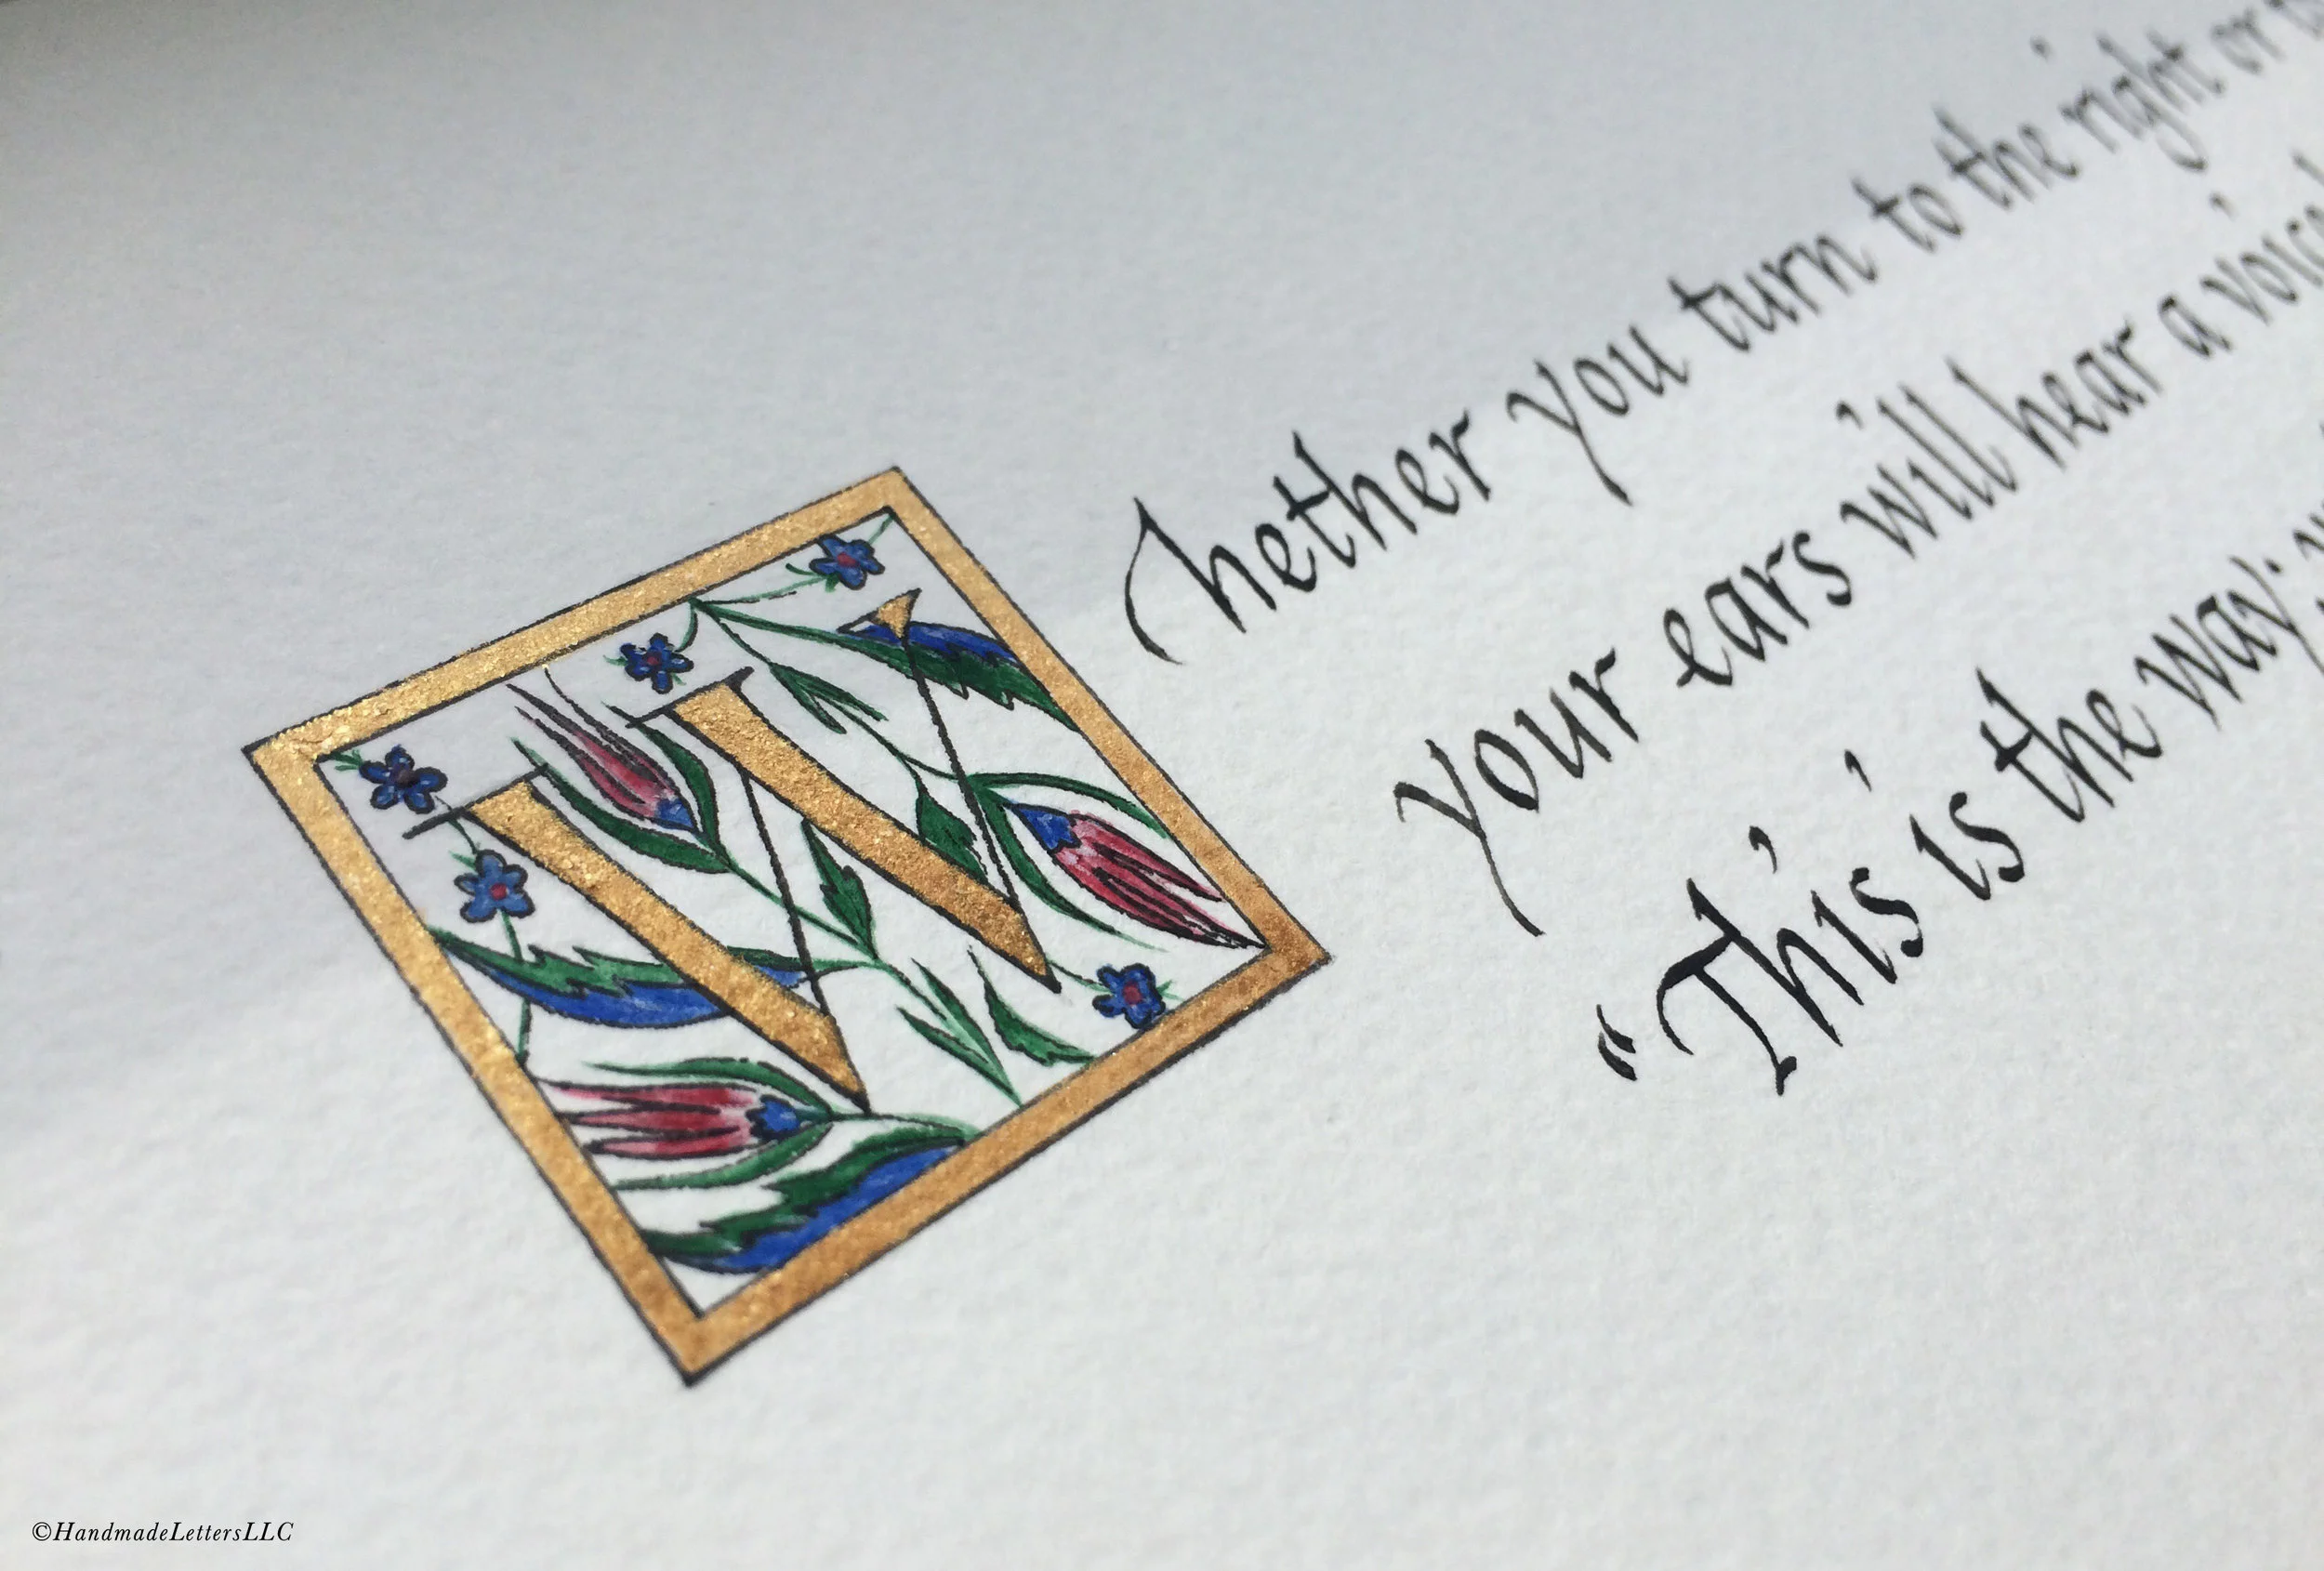 Whether you turn to the right or
your ears will hear a voice
“This is the way;
©HandmadeLettersLLC